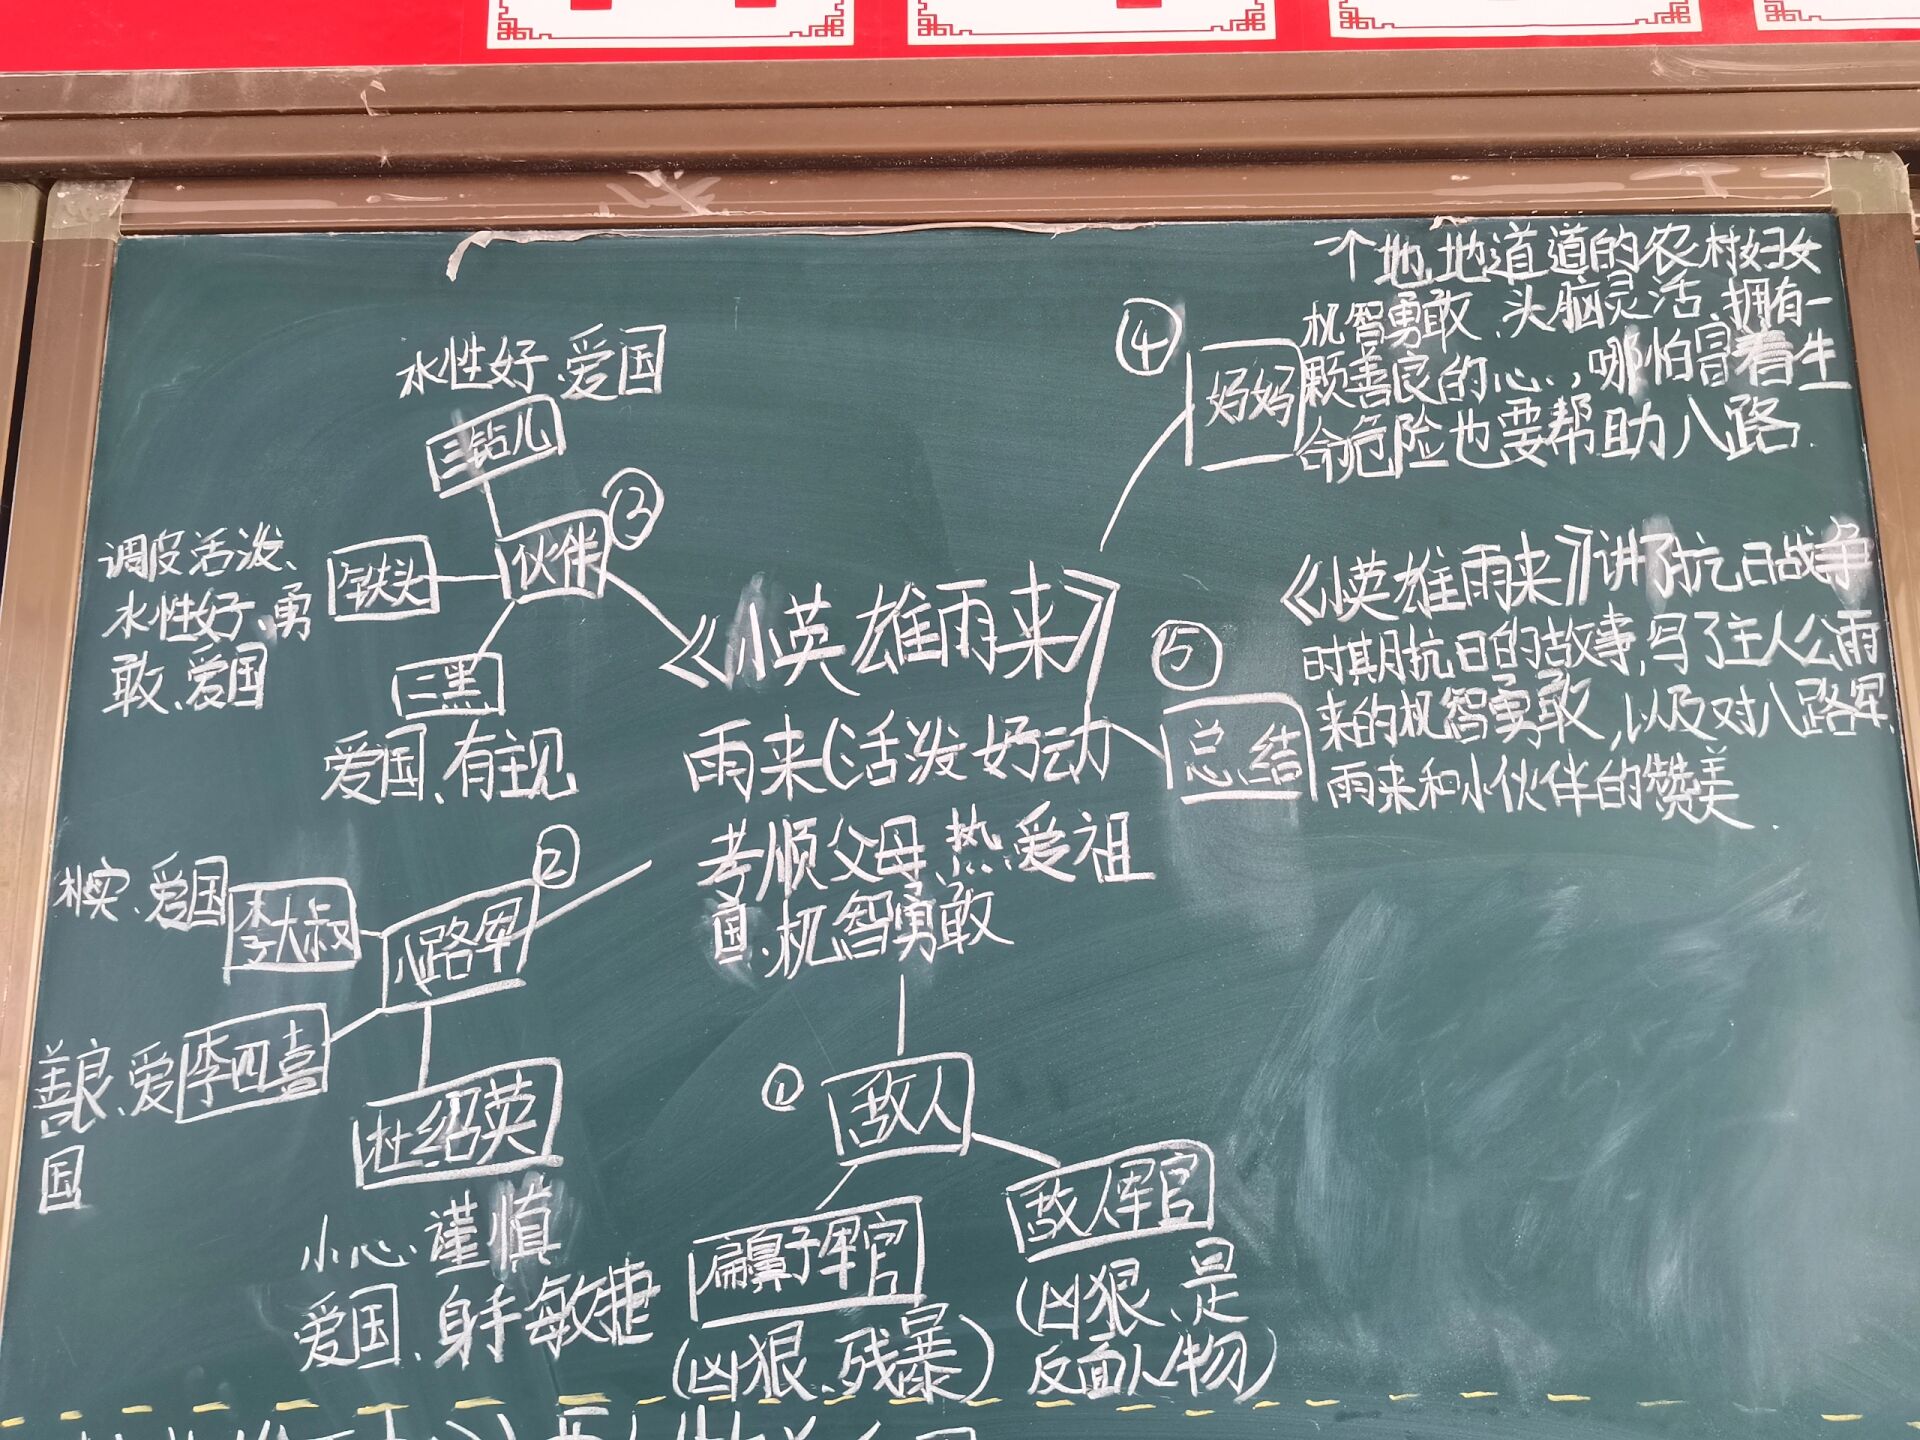 《小英雄雨来》
雨来(活泼好动
孝顺父母、热爱祖
国、机智勇敢
①
敌人
扁鼻子军官
(凶狠、残暴)
敌人军官
(凶狠、是
反面人物)
②
八路军
李大叔
朴实、爱国
李四喜
善良、爱
国
杜绍英
小心、谨慎
爱国、身手敏捷
③
伙伴
三钻儿
水性好、爱国
铁头
调皮活泼、
水性好、勇
敢、爱国
二黑
爱国、有主见
④
妈妈
一个地地道道的农村妇女
机智勇敢、头脑灵活、拥有一
颗善良的心,哪怕冒着生
命危险也要帮助八路.
⑤
总结
《小英雄雨来》讲了抗日战争
时期抗日的故事,写了主人公雨
来的机智勇敢,以及对八路军、
雨来和小伙伴的赞美.